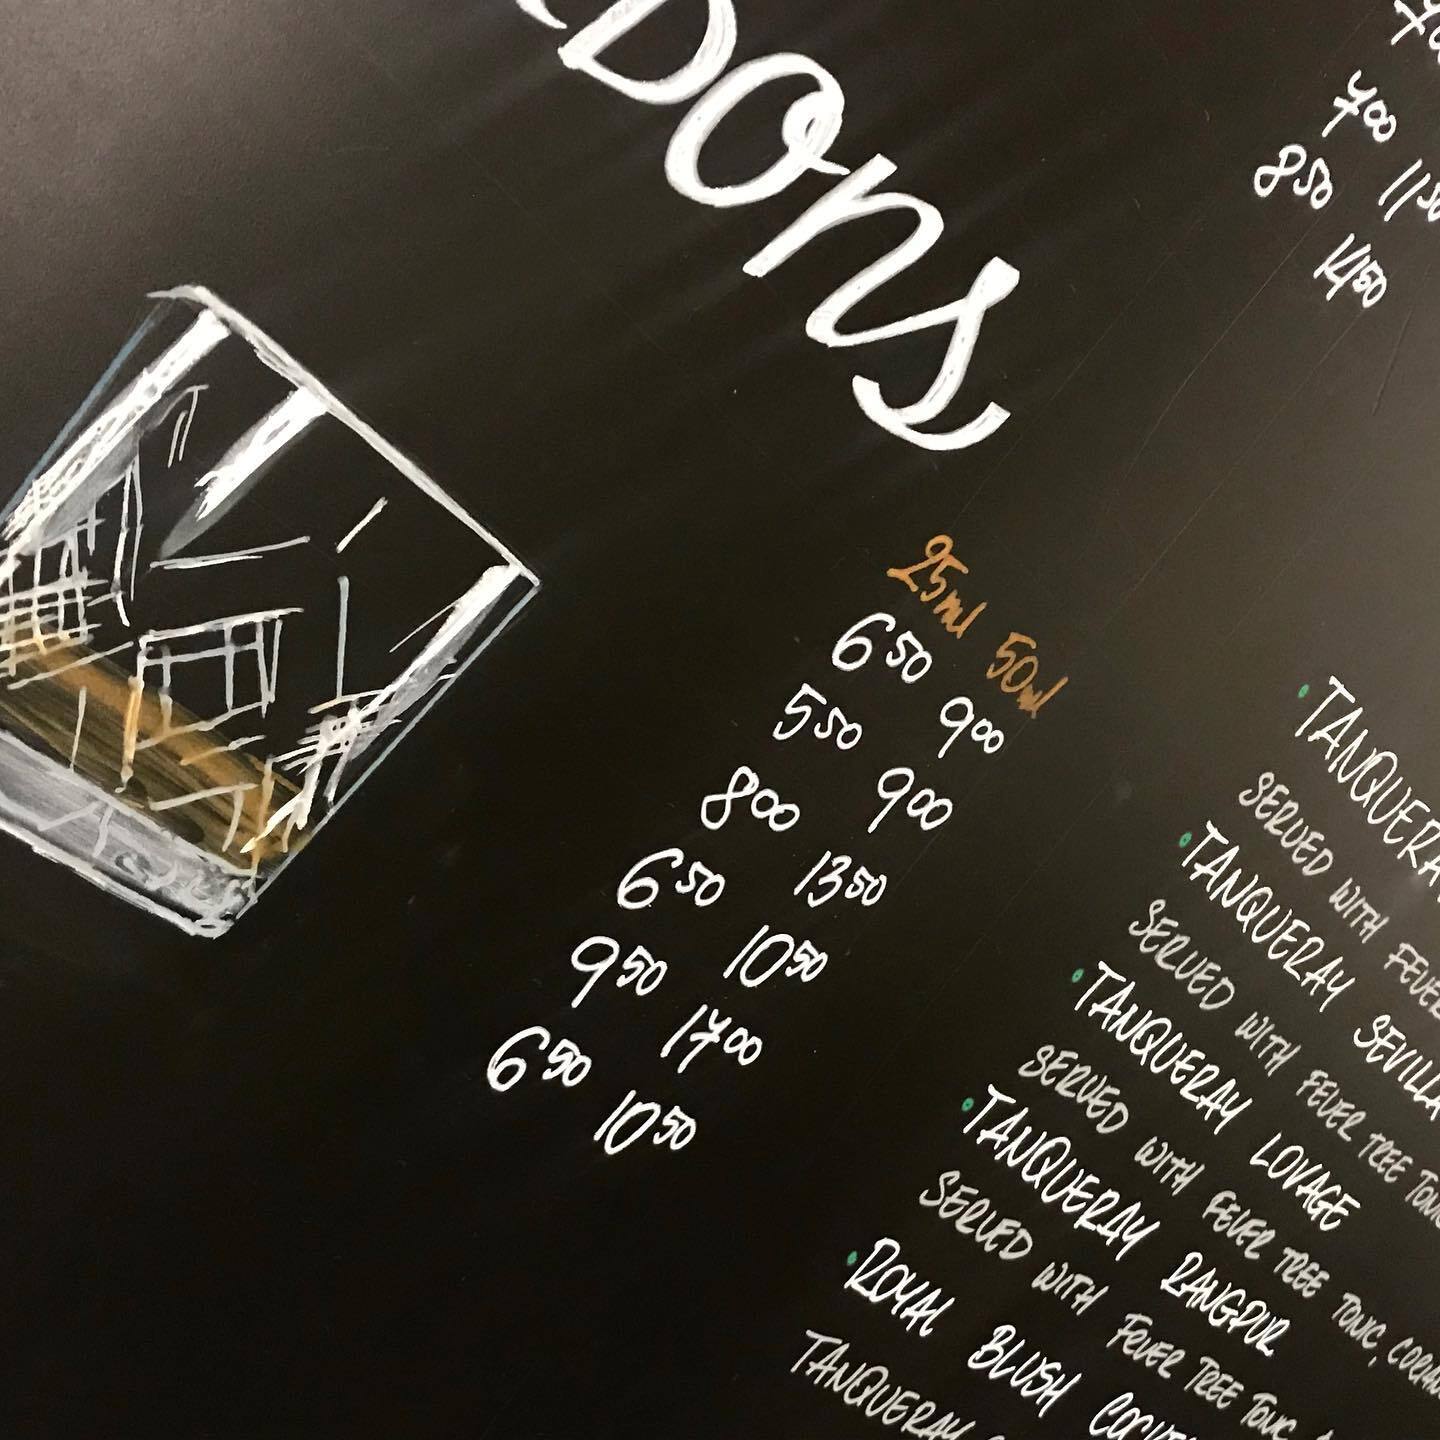 Dons
700
850 1150
1450
25ml 50ml
650 900
550 900
800 1350
650 1050
950 1700
650 1050
TANQUERAY
SERVED WITH FEVER
TANQUERAY SEVILLA
SERVED WITH FEVER TREE TONIC
TANQUERAY LOVAGE
SERVED WITH FEVER TREE TONIC,
TANQUERAY RANGPUR
SERVED WITH FEVER TREE TONIC
ROYAL BLUSH
TANQUERAY